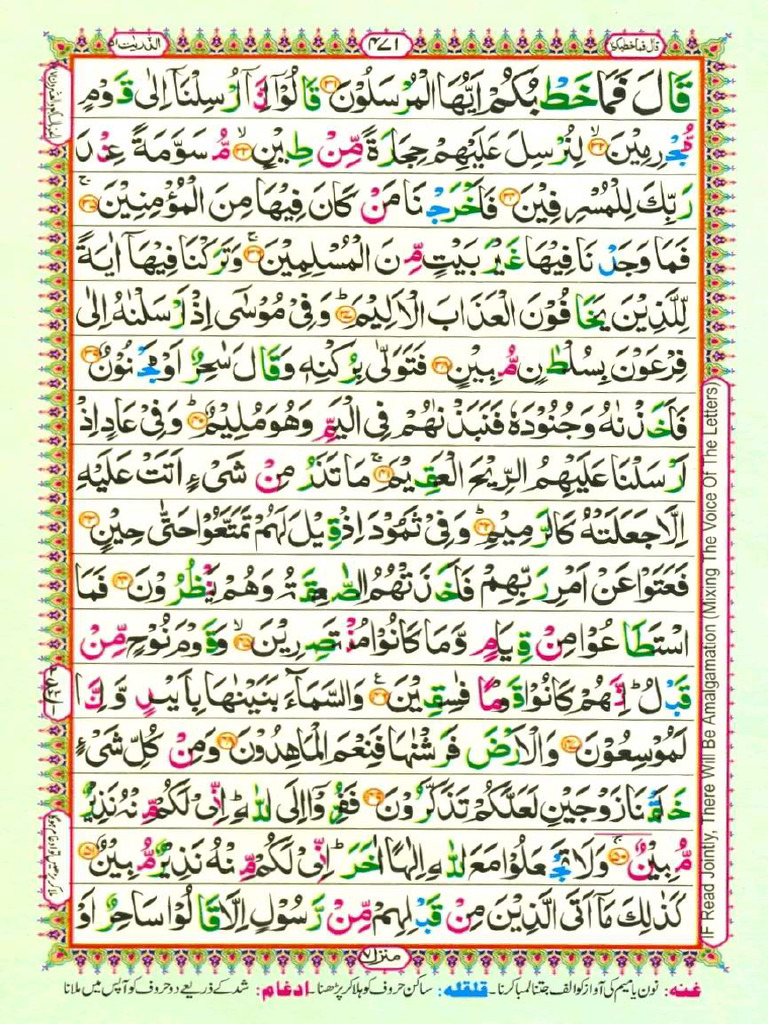 قال فما خطبكم ٢٧
٤٧١
الذّٰريٰت ٥١
قَالَ فَمَا خَطْبُكُمْ اَيُّهَا الْمُرْسَلُوْنَ ﴿۳۱﴾ قَالُوْۤا اِنَّاۤ اُرْسِلْنَاۤ اِلٰى قَوْمٍ
مُّجْرِمِيْنَ ﴿۳۲﴾ لِنُرْسِلَ عَلَيْهِمْ حِجَارَةً مِّنْ طِيْنٍ ﴿۳۳﴾ مُّسَوَّمَةً عِنْدَ
رَبِّكَ لِلْمُسْرِفِيْنَ ﴿۳۴﴾ فَاَخْرَجْنَا مَنْ كَانَ فِيْهَا مِنَ الْمُؤْمِنِيْنَ ﴿۳۵﴾
فَمَا وَجَدْنَا فِيْهَا غَيْرَ بَيْتٍ مِّنَ الْمُسْلِمِيْنَ ﴿۳۶﴾ وَتَرَكْنَا فِيْهَاۤ اٰيَةً
لِّلَّذِيْنَ يَخَافُوْنَ الْعَذَابَ الْاَلِيْمَ ﴿۳۷﴾ وَفِيْ مُوْسٰۤى اِذْ اَرْسَلْنٰهُ اِلٰى
فِرْعَوْنَ بِسُلْطٰنٍ مُّبِيْنٍ ﴿۳۸﴾ فَتَوَلّٰى بِرُكْنِهٖ وَقَالَ سٰحِرٌ اَوْ مَجْنُوْنٌ ﴿۳۹﴾
فَاَخَذْنٰهُ وَجُنُوْدَهٗ فَنَبَذْنٰهُمْ فِي الْيَمِّ وَهُوَ مُلِيْمٌ ﴿۴۰﴾ وَفِيْ عَادٍ اِذْ
اَرْسَلْنَا عَلَيْهِمُ الرِّيْحَ الْعَقِيْمَ ﴿۴۱﴾ مَا تَذَرُ مِنْ شَيْءٍ اَتَتْ عَلَيْهِ
اِلَّا جَعَلَتْهُ كَالرَّمِيْمِ ﴿۴۲﴾ وَفِيْ ثَمُوْدَ اِذْ قِيْلَ لَهُمْ تَمَتَّعُوْا حَتّٰى حِيْنٍ ﴿۴۳﴾
فَعَتَوْا عَنْ اَمْرِ رَبِّهِمْ فَاَخَذَتْهُمُ الصّٰعِقَةُ وَهُمْ يَنْظُرُوْنَ ﴿۴۴﴾ فَمَا
اسْتَطَاعُوْا مِنْ قِيَامٍ وَّمَا كَانُوْا مُنْتَصِرِيْنَ ﴿۴۵﴾ وَقَوْمَ نُوْحٍ مِّنْ
قَبْلُ ؕ اِنَّهُمْ كَانُوْا قَوْمًا فٰسِقِيْنَ ﴿۴۶﴾ وَالسَّمَآءَ بَنَيْنٰهَا بِاَيْىدٍ وَّاِنَّا
لَمُوْسِعُوْنَ ﴿۴۷﴾ وَالْاَرْضَ فَرَشْنٰهَا فَنِعْمَ الْمٰهِدُوْنَ ﴿۴۸﴾ وَمِنْ كُلِّ شَيْءٍ
خَلَقْنَا زَوْجَيْنِ لَعَلَّكُمْ تَذَكَّرُوْنَ ﴿۴۹﴾ فَفِرُّوْۤا اِلَى اللّٰهِ ؕ اِنِّيْ لَكُمْ مِّنْهُ نَذِيْرٌ
مُّبِيْنٌ ﴿۵۰﴾ وَلَا تَجْعَلُوْا مَعَ اللّٰهِ اِلٰهًا اٰخَرَ ؕ اِنِّيْ لَكُمْ مِّنْهُ نَذِيْرٌ مُّبِيْنٌ ﴿۵۱﴾
كَذٰلِكَ مَاۤ اَتَى الَّذِيْنَ مِنْ قَبْلِهِمْ مِّنْ رَّسُوْلٍ اِلَّا قَالُوْا سَاحِرٌ اَوْ
منزل ٧
IF Read Jointly, There Will Be Amalgamation (Mixing The Voice Of The Letters)
غنه: نون یا میم کی آواز کو الف جتنا لمبا کرنا۔ قلقله: ساکن حروف کو ہلا کر پڑھنا۔ ادغام: شد کے ذریعے دو حروف کو آپس میں ملانا